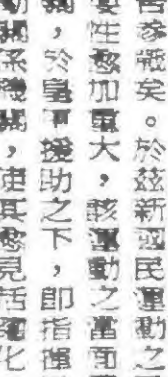 參戰矣。於茲新國民運動之
性愈加重大，該運動之當面
，於皇軍援助之下，即指揮
係機關，使其愈見活潑化